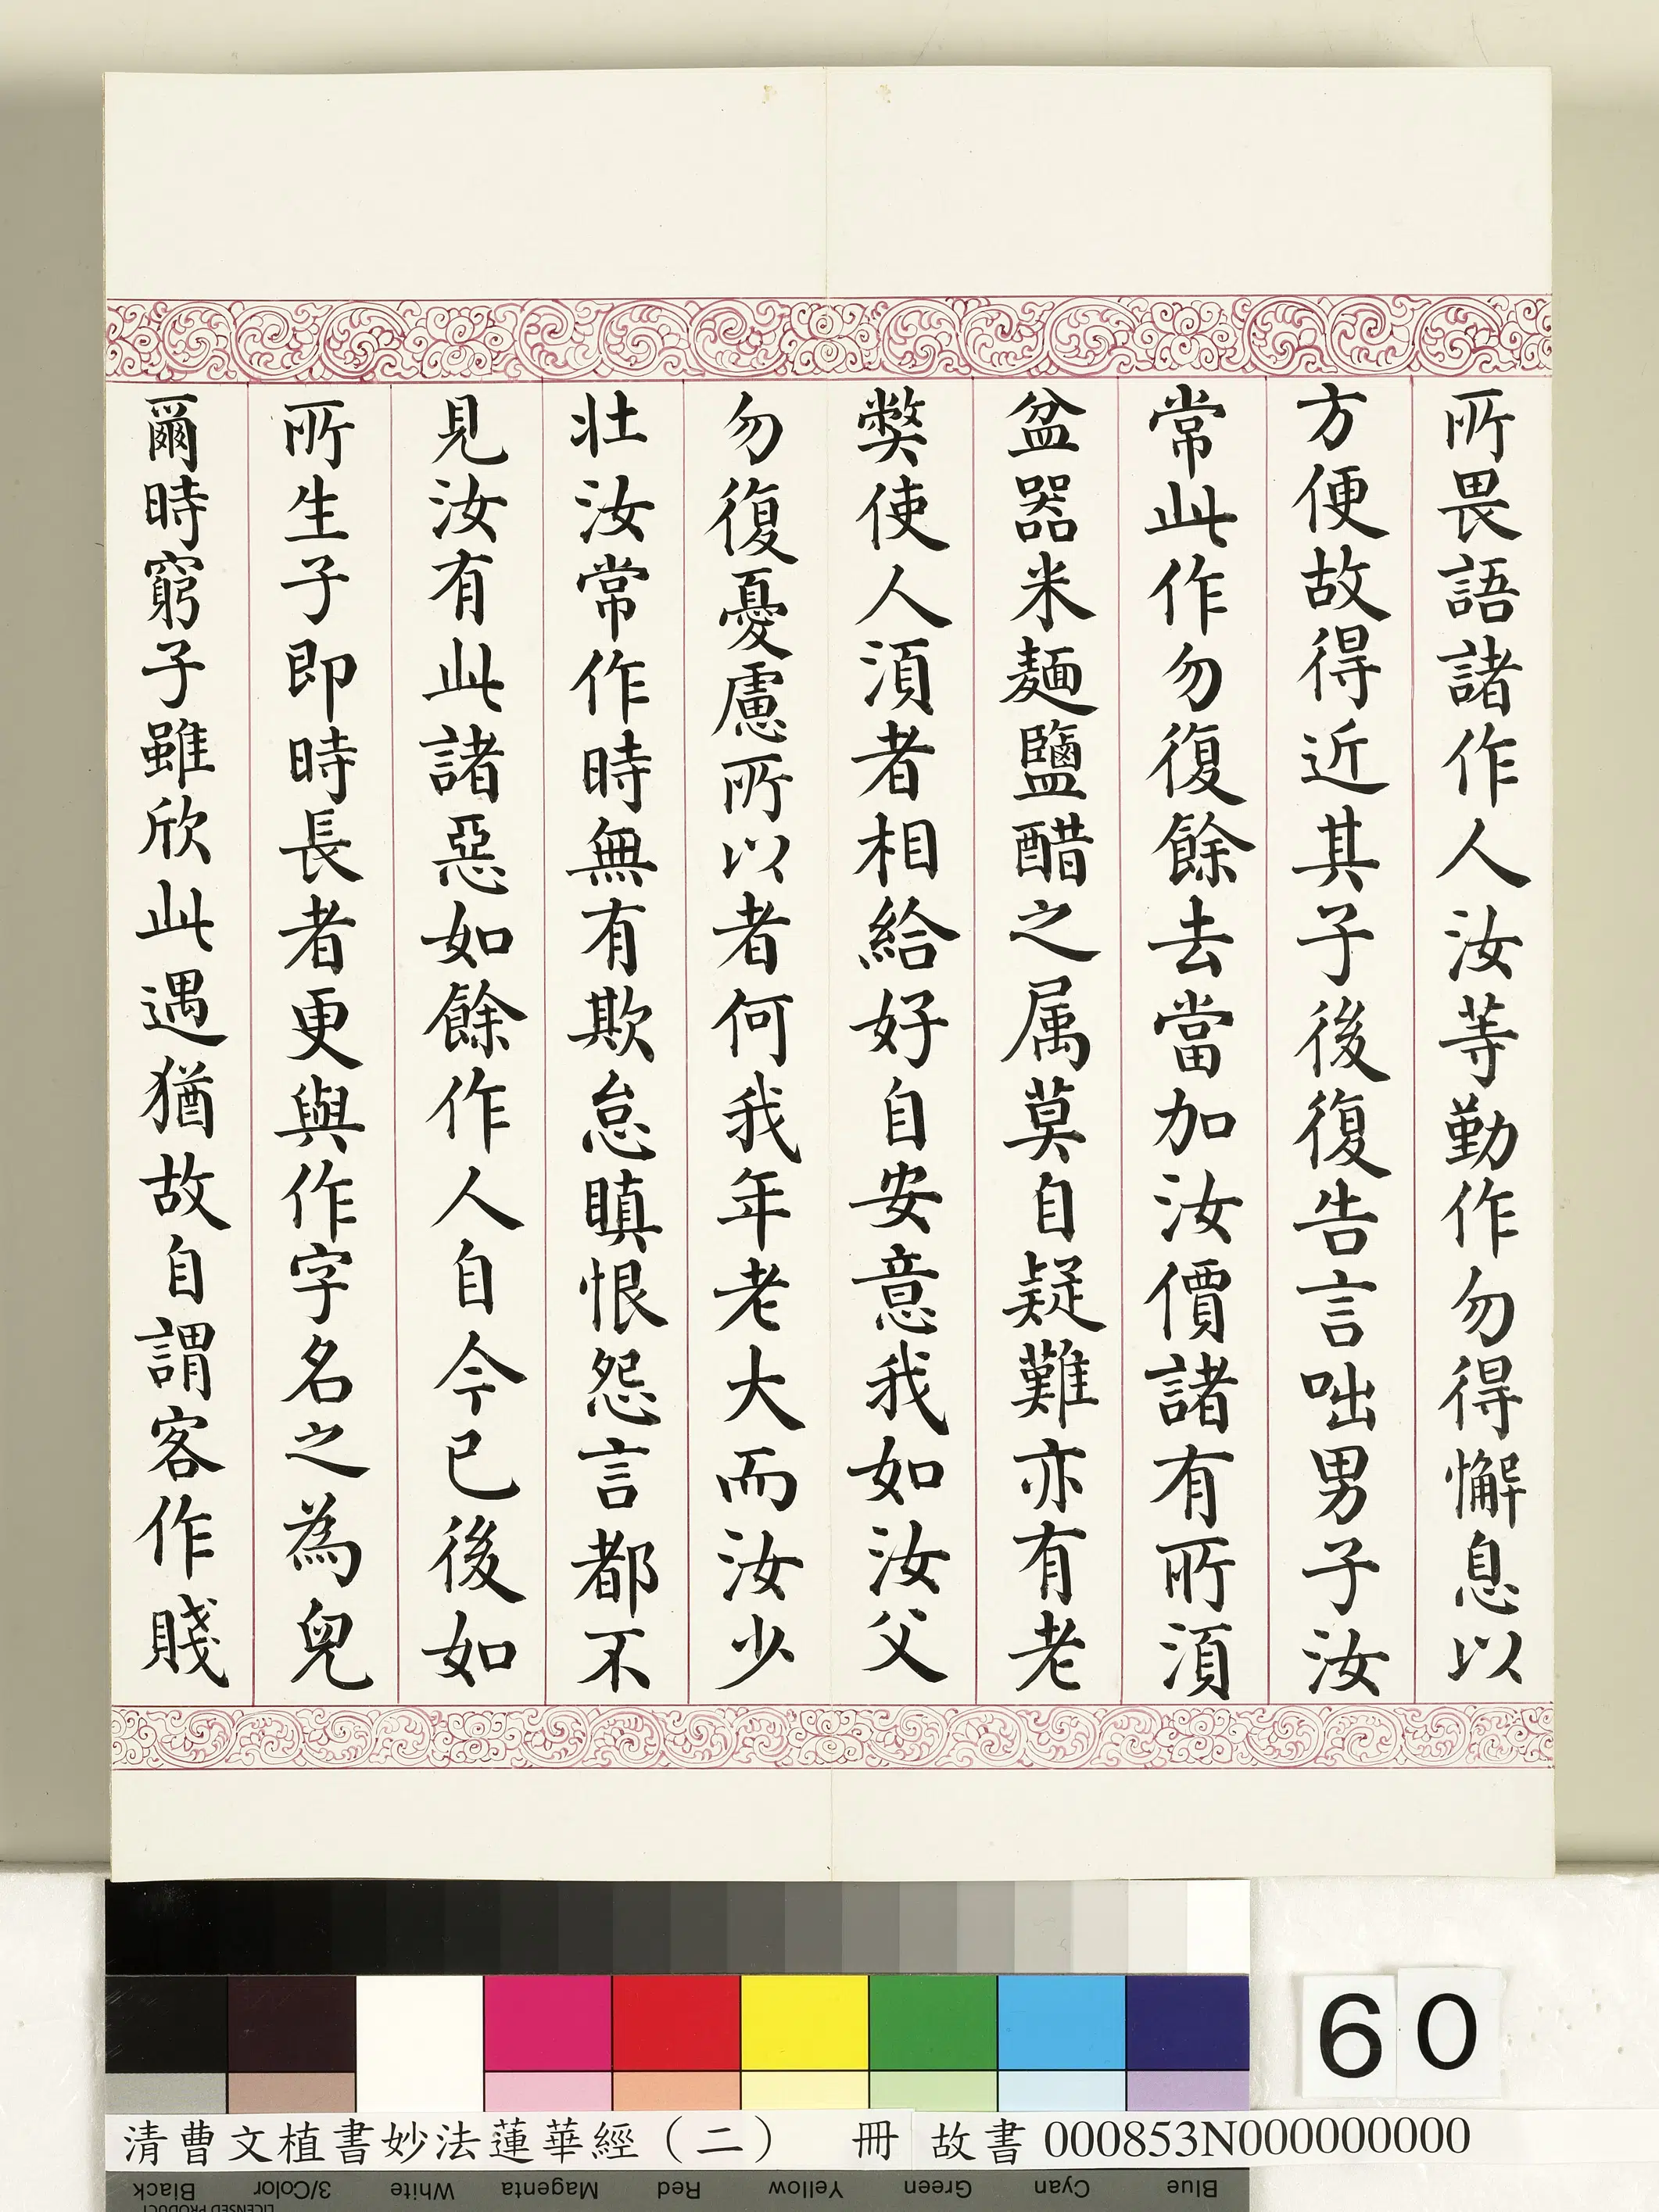 所畏語諸作人汝等勤作勿得懈息以
方便故得近其子後復告言咄男子汝
常此作勿復餘去當加汝價諸有所須
盆器米麵鹽醋之属莫自疑難亦有老
弊使人須者相給好自安意我如汝父
勿復憂慮所以者何我年老大而汝少
壯汝常作時無有欺怠瞋恨怨言都不
見汝有此諸惡如餘作人自今已後如
所生子即時長者更與作字名之為兒
爾時窮子雖欣此遇猶故自謂客作賤
60
清曹文植書妙法蓮華經（二） 冊 故書 000853N000000000
Black 3/Color White Magenta Red Yellow Green Cyan Blue
LICENSED PRODUCT